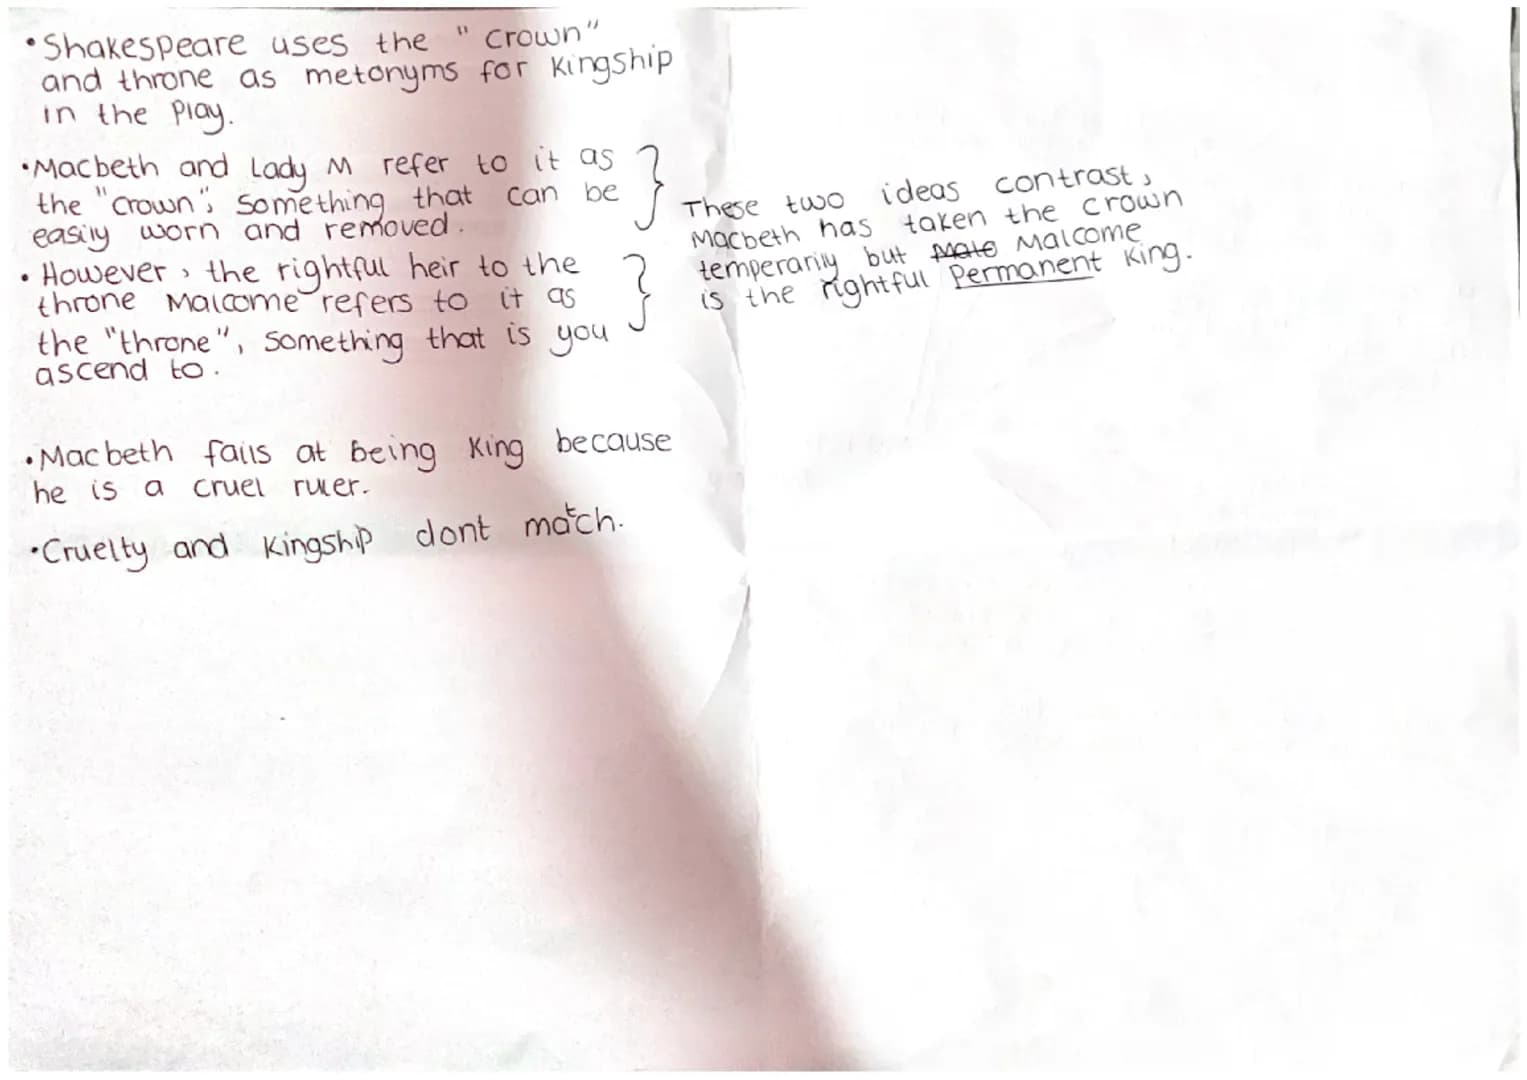 • Shakespeare uses the "crown"
and throne as metonyms for Kingship
in the Play.
• Macbeth and Lady M refer to it as
the "crown", Something that can be
easily worn and removed.
• However, the rightful heir to the
throne Malcome refers to it as
the "throne", Something that is you
ascend to.
These two ideas contrast,
Macbeth has taken the crown
temperarily but Male Malcome
is the rightful Permanent King.
• Macbeth fails at being King because
he is a cruel ruler.
• Cruelty and Kingship dont match.